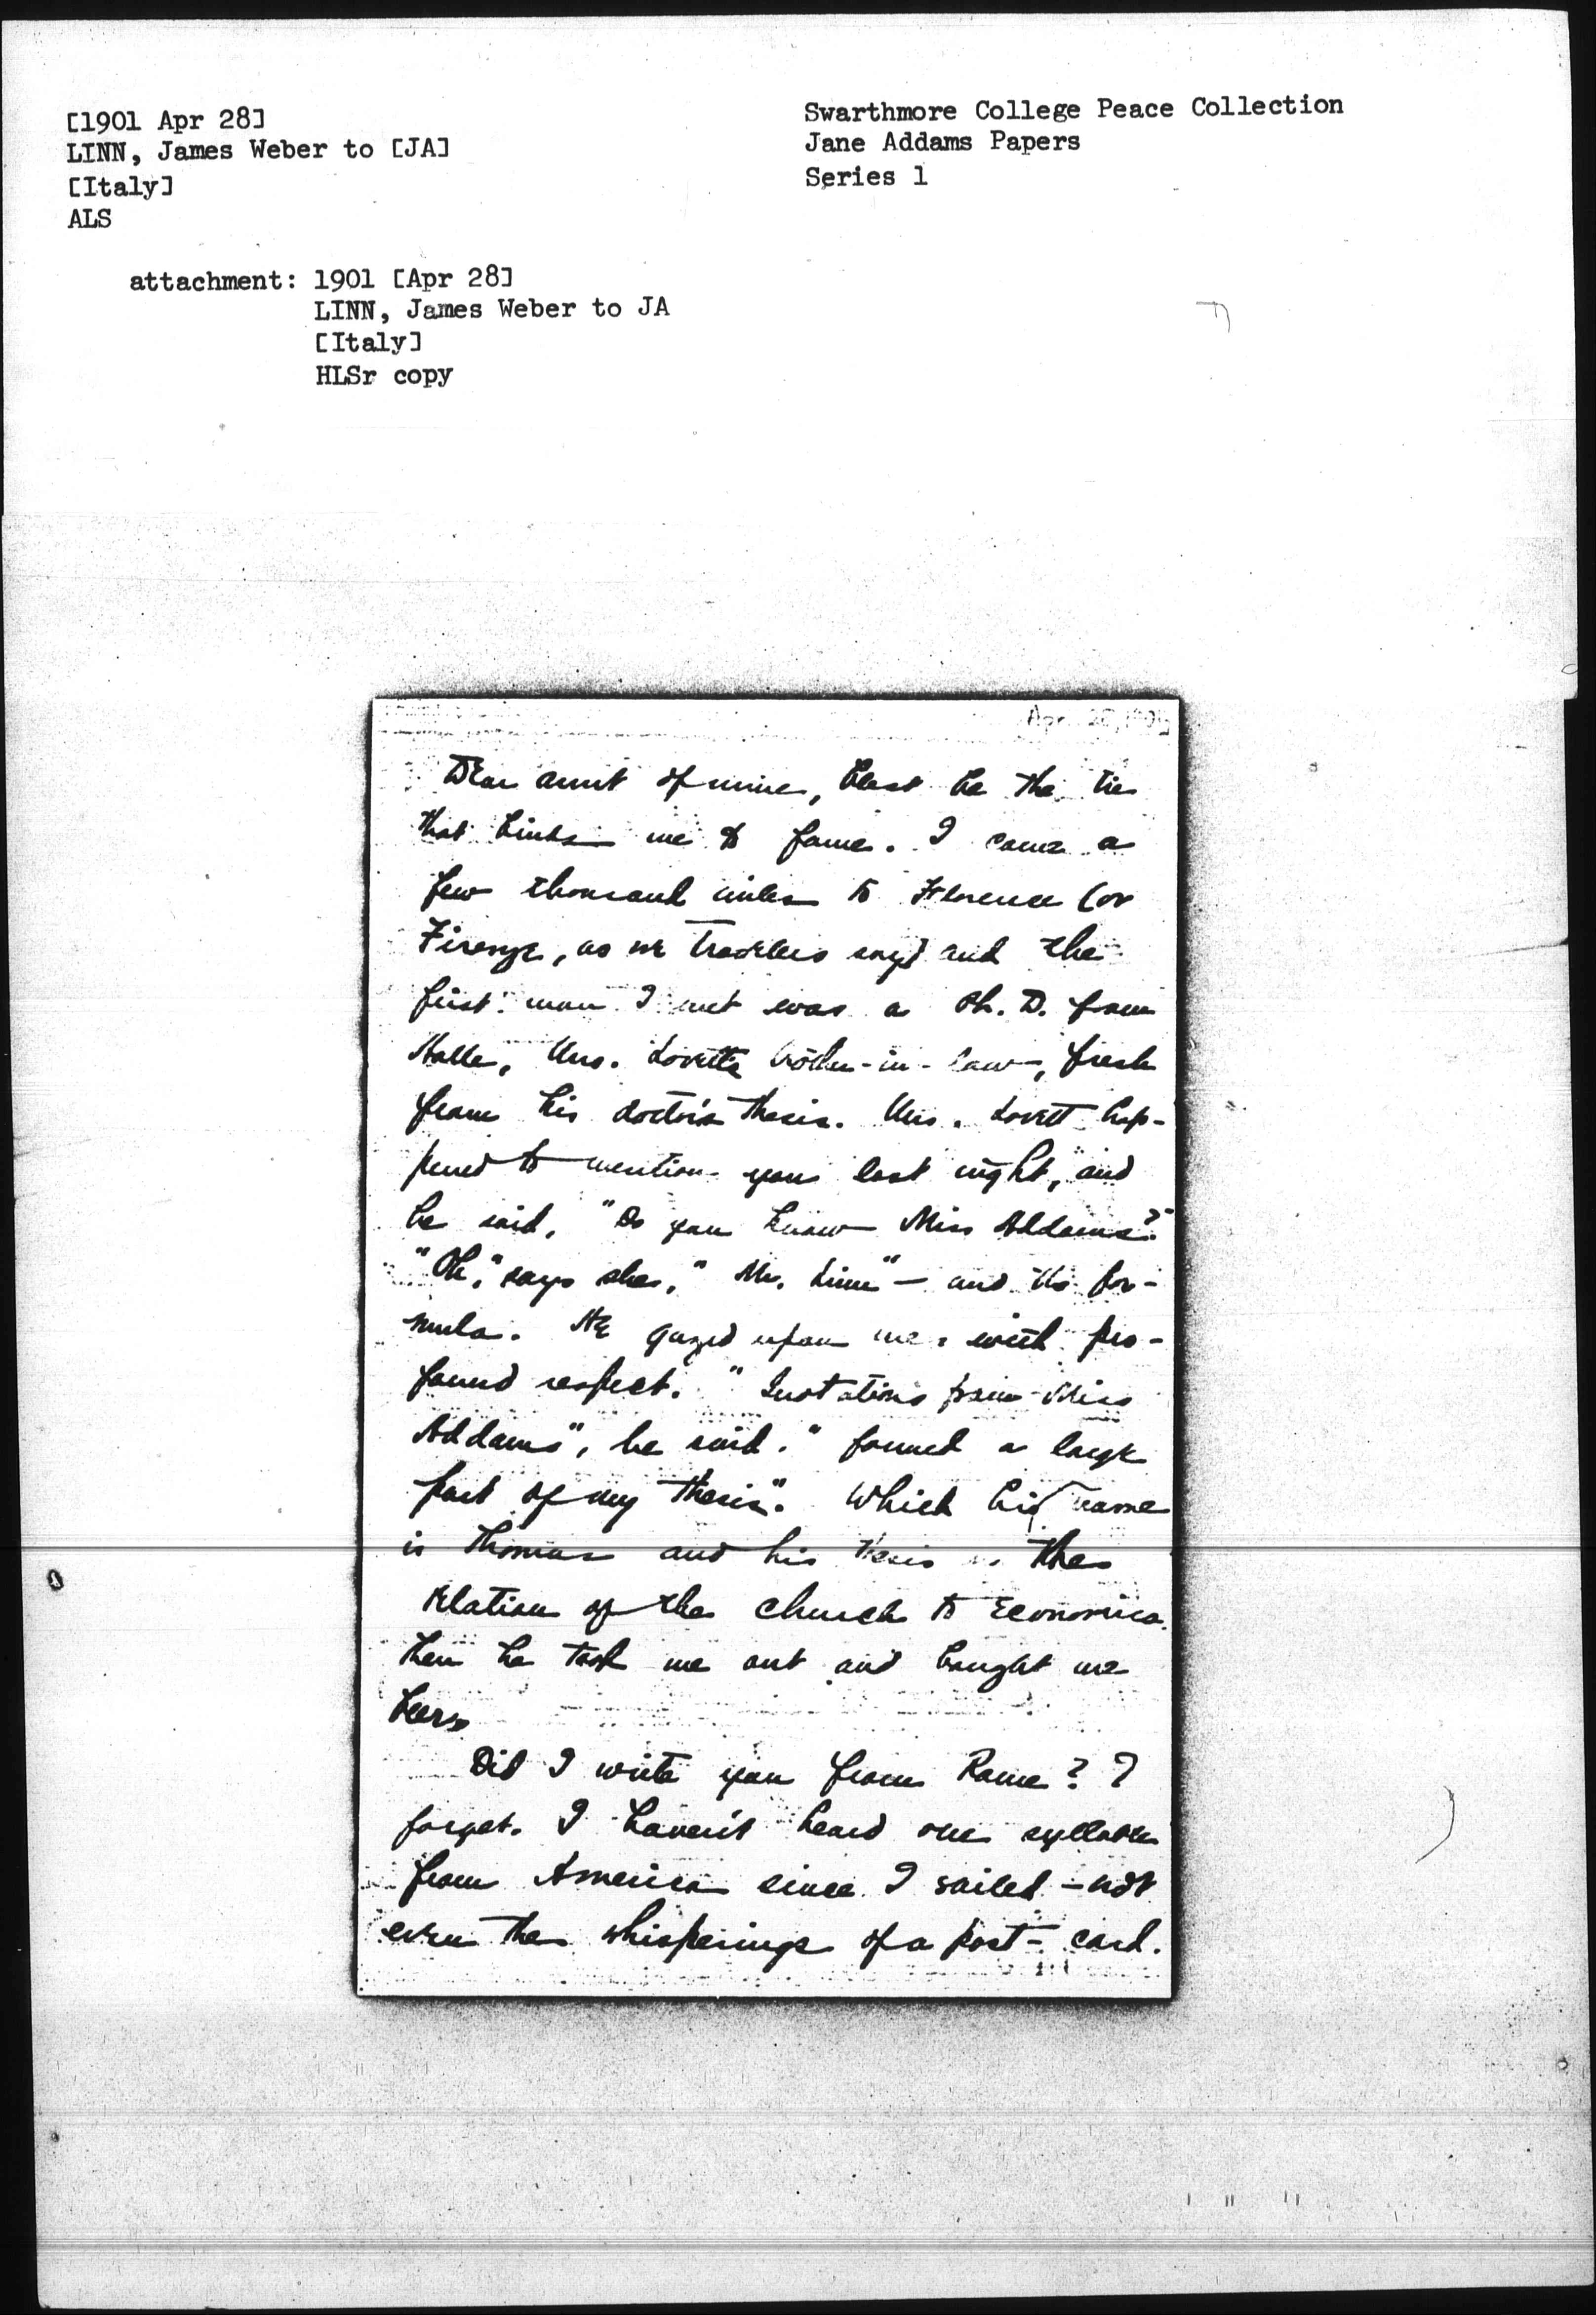 [1901 Apr 28]
LINN, James Weber to [JA]
[Italy]
ALS
Swarthmore College Peace Collection
Jane Addams Papers
Series 1
attachment: 1901 [Apr 28]
LINN, James Weber to JA
[Italy]
HLSr copy
Dear aunt of mine, blest be the tie
that binds me to fame. I came a
few thousand miles to Florence (or
Firenze, as we travelers say) and the
first man I met was a Ph. D. from
Halle, Mrs. Lovett's brother-in-law, fresh
from his doctor's thesis. Mrs. Lovett hap-
pened to mention you last night, and
he said, "Do you know Miss Addams?"
"Oh," says she, "Mr. Linn" – and the for-
mula. He gazed upon me with pro-
found respect. "Quotations from Miss
Addams", he said. "formed a large
part of my thesis". Which his name
is Thomas and his thesis the
relation of the church to economics.
Then he took me out and bought me
beers
Did I write you from Rome? I
forget. I haven't heard one syllable
from America since I sailed – not
even the whisperings of a post-card.